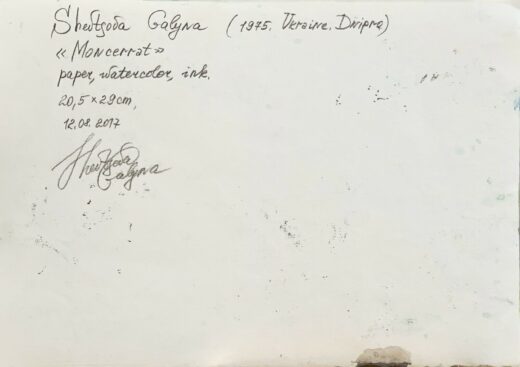 Shevtsova Galyna (1975. Ukraine. Dnipro)
«Moncerrat»
paper, watercolor, ink.
20,5×29cm,
12.08.2017
Shevtsova
Galyna